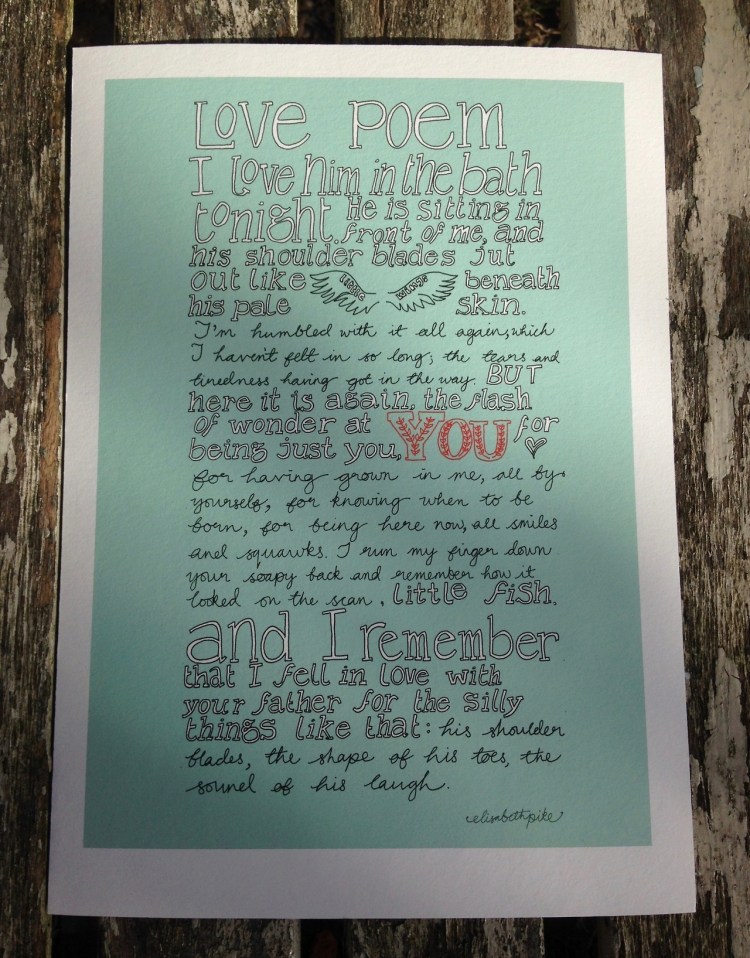 Love poem
I love him in the bath
tonight. He is sitting in
front of me, and
his shoulder blades jut
out like wings beneath
his pale skin.
I'm humbled with it all again, which
I haven't felt in so long; the tears and
tiredness having got in the way. BUT
here it is again, the flash
of wonder at YOU for
being just you,
for having grown in me, all by
yourself, for knowing when to be
born, for being here now, all smiles
and squawks. I run my finger down
your soapy back and remember how it
looked on the scan, little fish,
and I remember
that I fell in love with
your father for the silly
things like that: his shoulder
blades, the shape of his toes, the
sound of his laugh.
elisabethpike